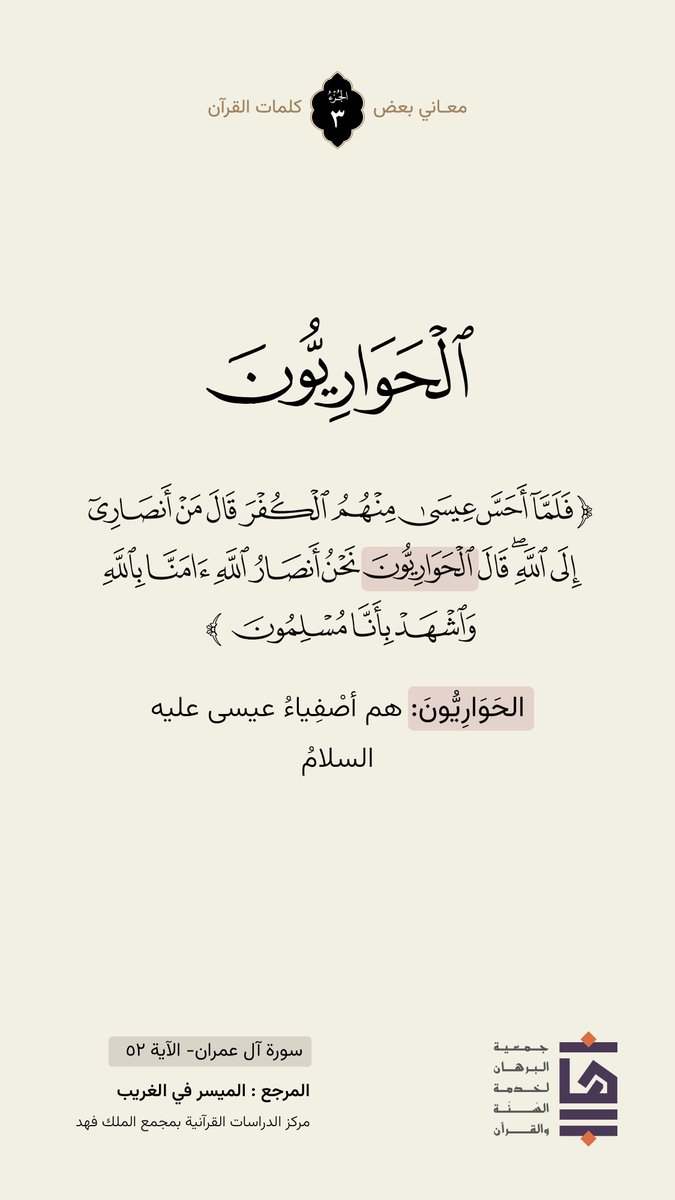 معـاني بعض الجُزْءُ ٣ كلمات القرآن
ٱلْحَوَارِيُّونَ
﴿فَلَمَّآ أَحَسَّ عِيسَىٰ مِنْهُمُ ٱلْكُفْرَ قَالَ مَنْ أَنصَارِىٓ
إِلَى ٱللَّهِۖ قَالَ ٱلْحَوَارِيُّونَ نَحْنُ أَنصَارُ ٱللَّهِ ءَامَنَّا بِٱللَّهِ
وَٱشْهَدْ بِأَنَّا مُسْلِمُونَ ﴾
الحَوَارِيُّونَ: هم أصْفِياءُ عيسى عليه
السلامُ
سورة آل عمران- الآية ٥٢
المرجع : الميسر في الغريب
مركز الدراسات القرآنية بمجمع الملك فهد
جمعية
البرهان
لخدمة
السُّنَّة
والقرآن